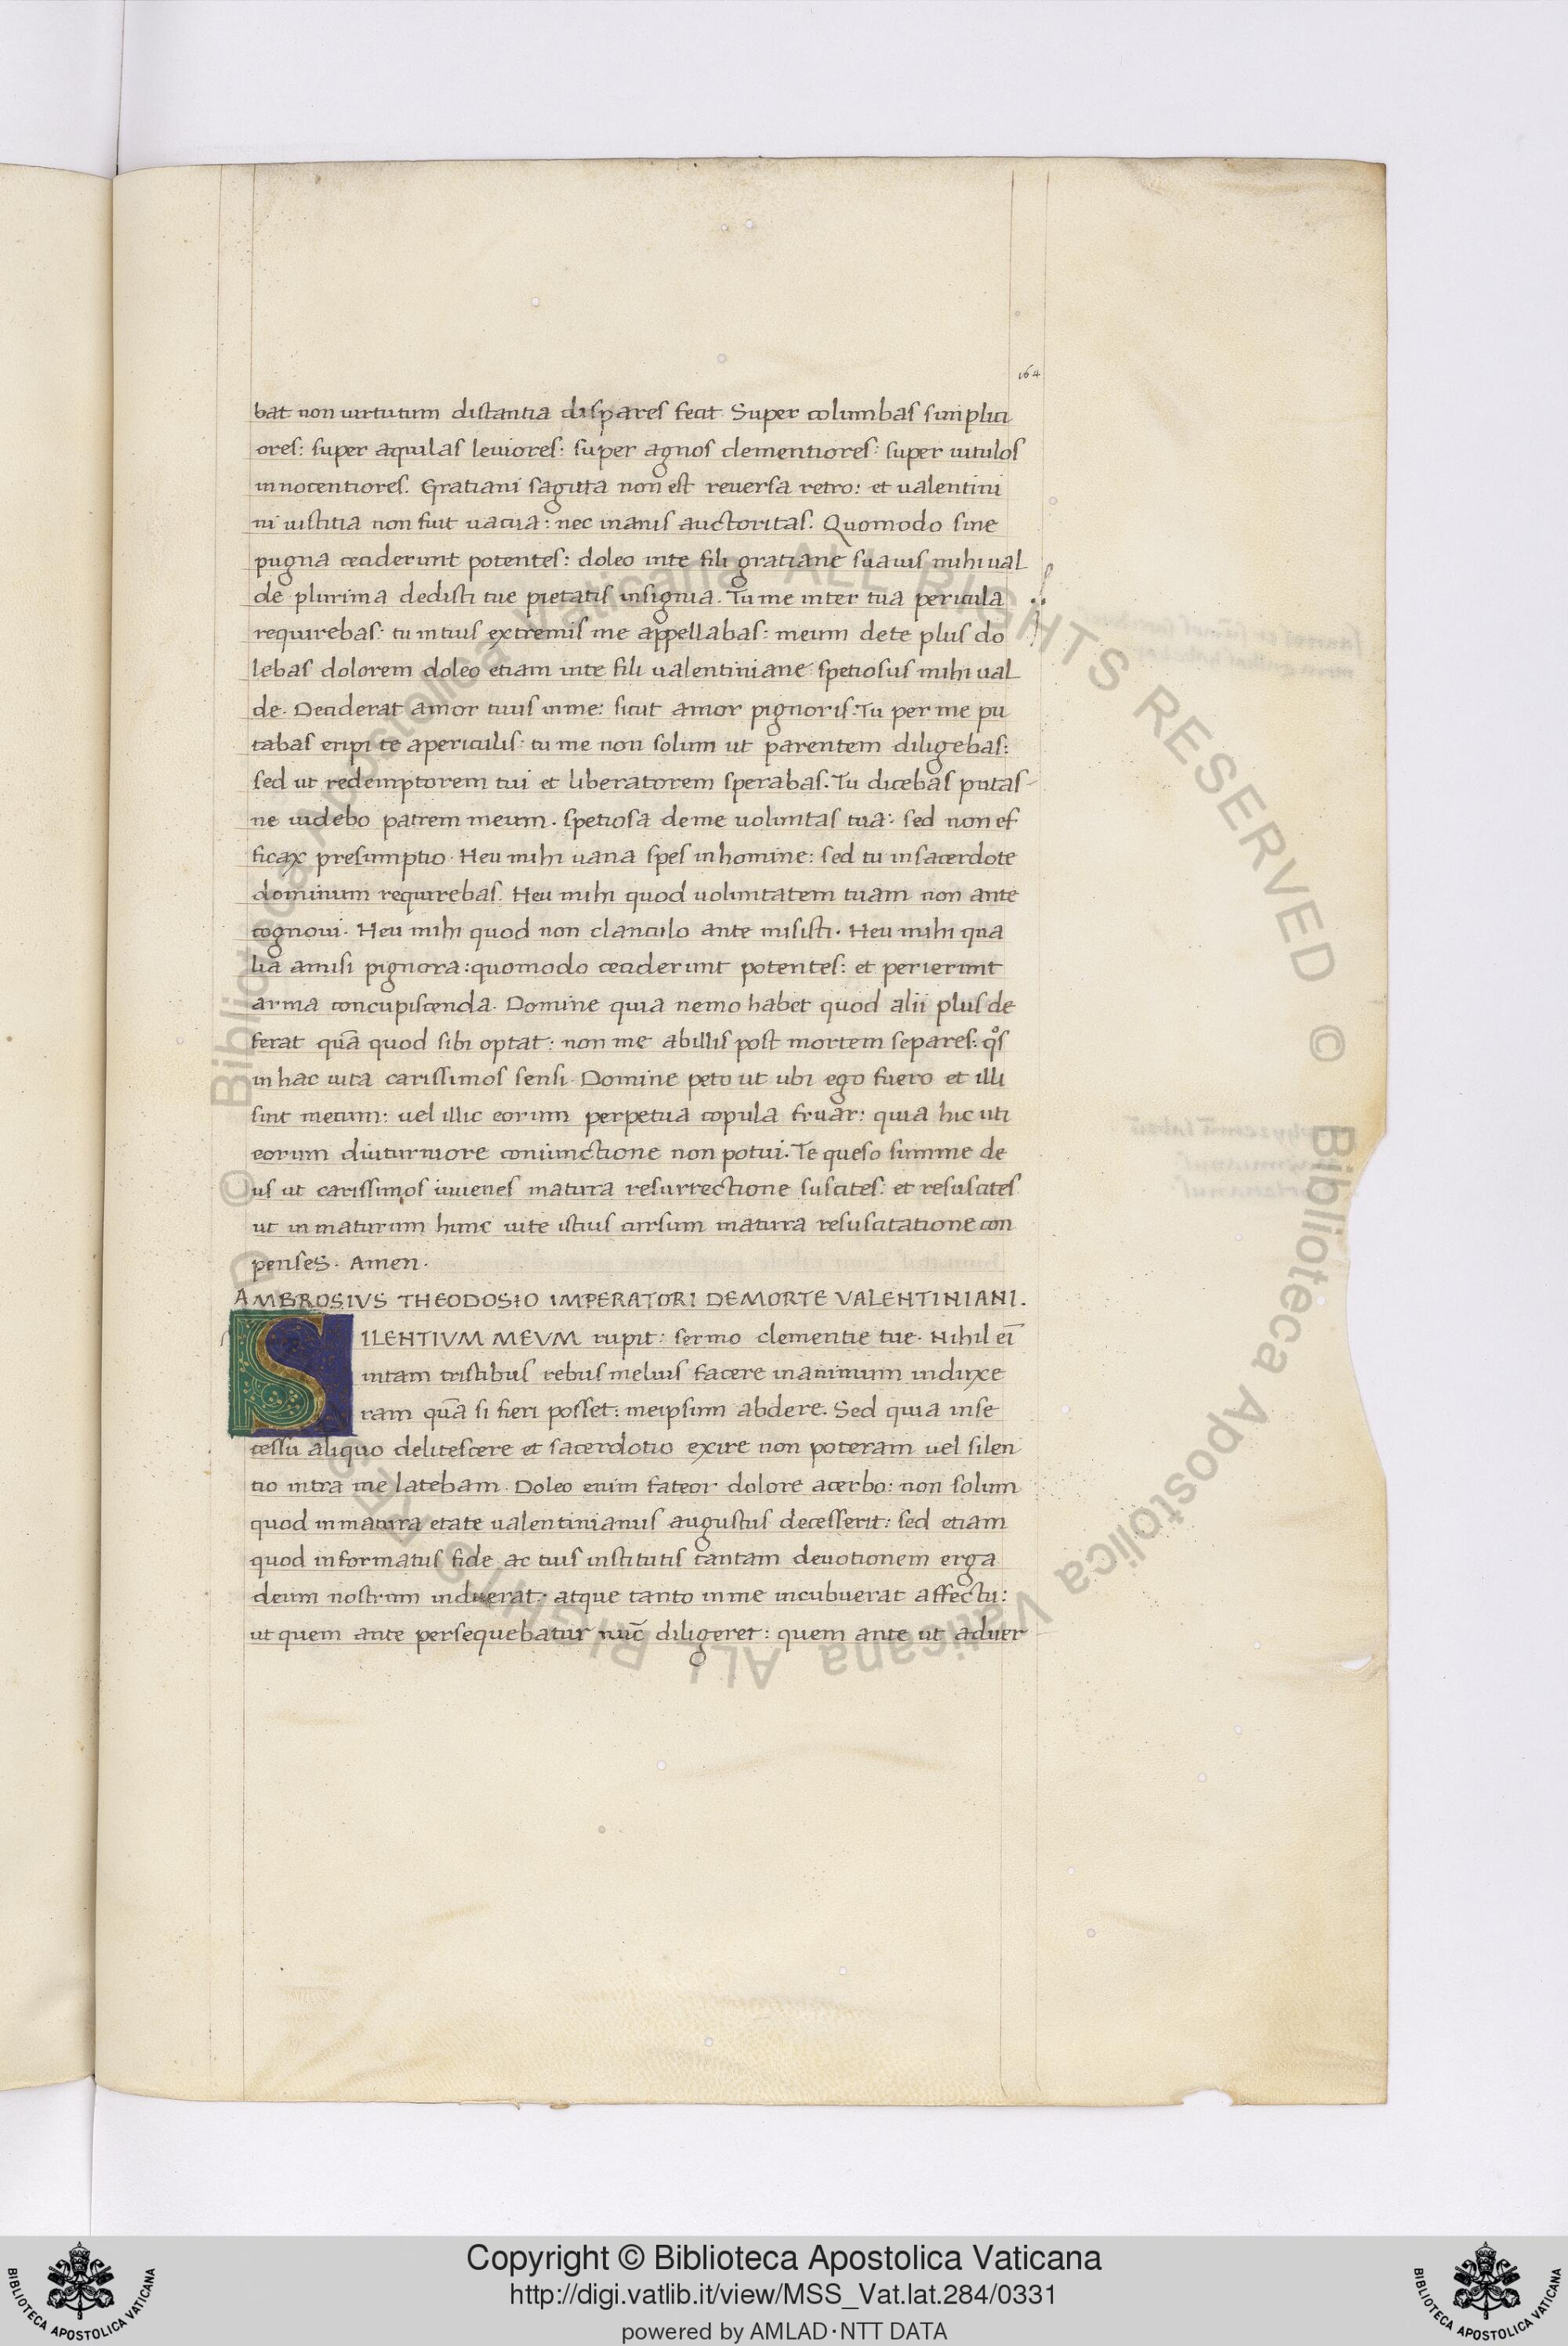 164
bat non uirtutum distantia dispares fecit. Super columbas simplici
ores: super aquilas leuiores: super agnos clementiores: super uitulos
innocentiores. Gratiani sagitta non est reuersa retro: et ualentini
ni iustitia non fuit uacua: nec inanis auctoritas. Quomodo sine
pugna ceciderunt potentes: doleo inte fili gratiane suauis mihi ual
de plurima dedisti tue pietatis insignia. Tu me inter tua pericula
requirebas: tu in tuis extremis me appellabas: meum de te plus do
lebas dolorem doleo etiam inte fili ualentiniane spetiosus mihi ual
de. Deciderat amor tuus inme: sicut amor pignoris: Tu per me pu
tabas eripi te apericulis: tu me non solum ut parentem diligebas:
sed ut redemptorem tui et liberatorem sperabas. Tu dicebas putas
ne uidebo patrem meum. spetiosa deme uoluntas tua: sed non ef
ficax presumptio. Heu mihi uana spes inhomine: sed tu insacerdote
dominum requirebas. Heu mihi quod uoluntatem tuam non ante
cognoui. Heu mihi quod non clanculo ante misisti. Heu mihi qua
lia amisi pignora: quomodo ceciderunt potentes: et perierunt
arma concupiscenda. Domine quia nemo habet quod alii plus de
ferat quā quod sibi optat: non me abillis post mortem separes: qͦs
in hac uita carissimos sensi. Domine peto ut ubi ego fuero et illi
sint mecum: uel illic eorum perpetua copula fruar: quia hic uti
eorum diuturniore coniunctione non potui. Te queso summe de
us ut carissimos iuuenes matura resurrectione suscites: et resuscites
ut inmaturum hunc uite istius cursum matura resuscitatione con
penses. Amen.
AMBROSIVS THEODOSIO IMPERATORI DEMORTE VALENTINIANI.
SILENTIVM MEVM rupit: sermo clementie tue. Nihil eī
intam tristibus rebus melius facere inanimum induxe
ram quā si fieri posset: meipsum abdere. Sed quia inse
cessu aliquo delitescere et sacerdotio exire non poteram uel silen
tio intra me latebam. Doleo enim fateor dolore acerbo: non solum
quod inmatura etate ualentinianus augustus decesserit: sed etiam
quod informatus fide ac tuis institutis tantam deuotionem erga
deum nostrum induerat: atque tanto inme incubuerat affectu:
ut quem ante persequebatur nuc̄ diligeret: quem ante ut aduer
© Biblioteca Apostolica Vaticana ALL RIGHTS RESERVED © Biblioteca Apostolica Vaticana ALL RIGHTS RESERVED
Copyright © Biblioteca Apostolica Vaticana
http://digi.vatlib.it/view/MSS_Vat.lat.284/0331
powered by AMLAD·NTT DATA
BIBLIOTECA APOSTOLICA VATICANA
BIBLIOTECA APOSTOLICA VATICANA